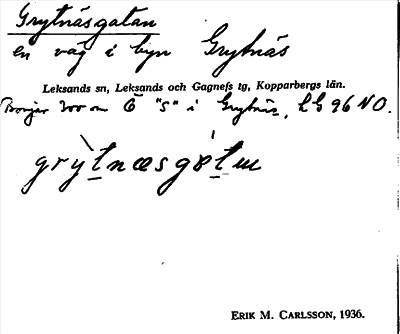 Grytnäsgatan
en väg i byn Grytnäs
Leksands sn, Leksands och Gagnefs tg, Kopparbergs län.
Börjar 300 m Ö "S" i Grytnäs, LG 96 NO.
grỳtnæsgatɯ
ERIK M. CARLSSON, 1936.